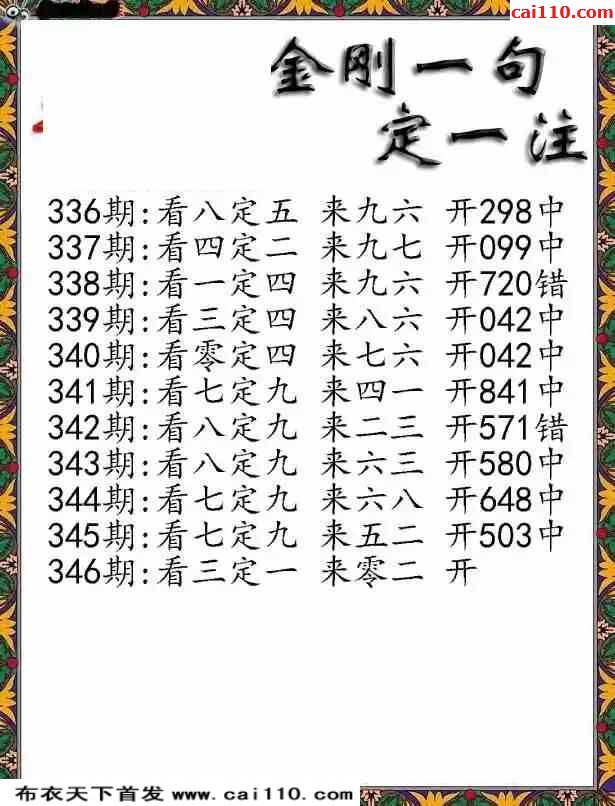 cai110.com
金刚一句
定一注
336期:看八定五 来九六 开298中
337期:看四定二 来九七 开099中
338期:看一定四 来九六 开720错
339期:看三定四 来八六 开042中
340期:看零定四 来七六 开042中
341期:看七定九 来四一 开841中
342期:看八定九 来二三 开571错
343期:看八定九 来六三 开580中
344期:看七定九 来六八 开648中
345期:看七定九 来五二 开503中
346期:看三定一 来零二 开
布衣天下首发 www.cai110.com